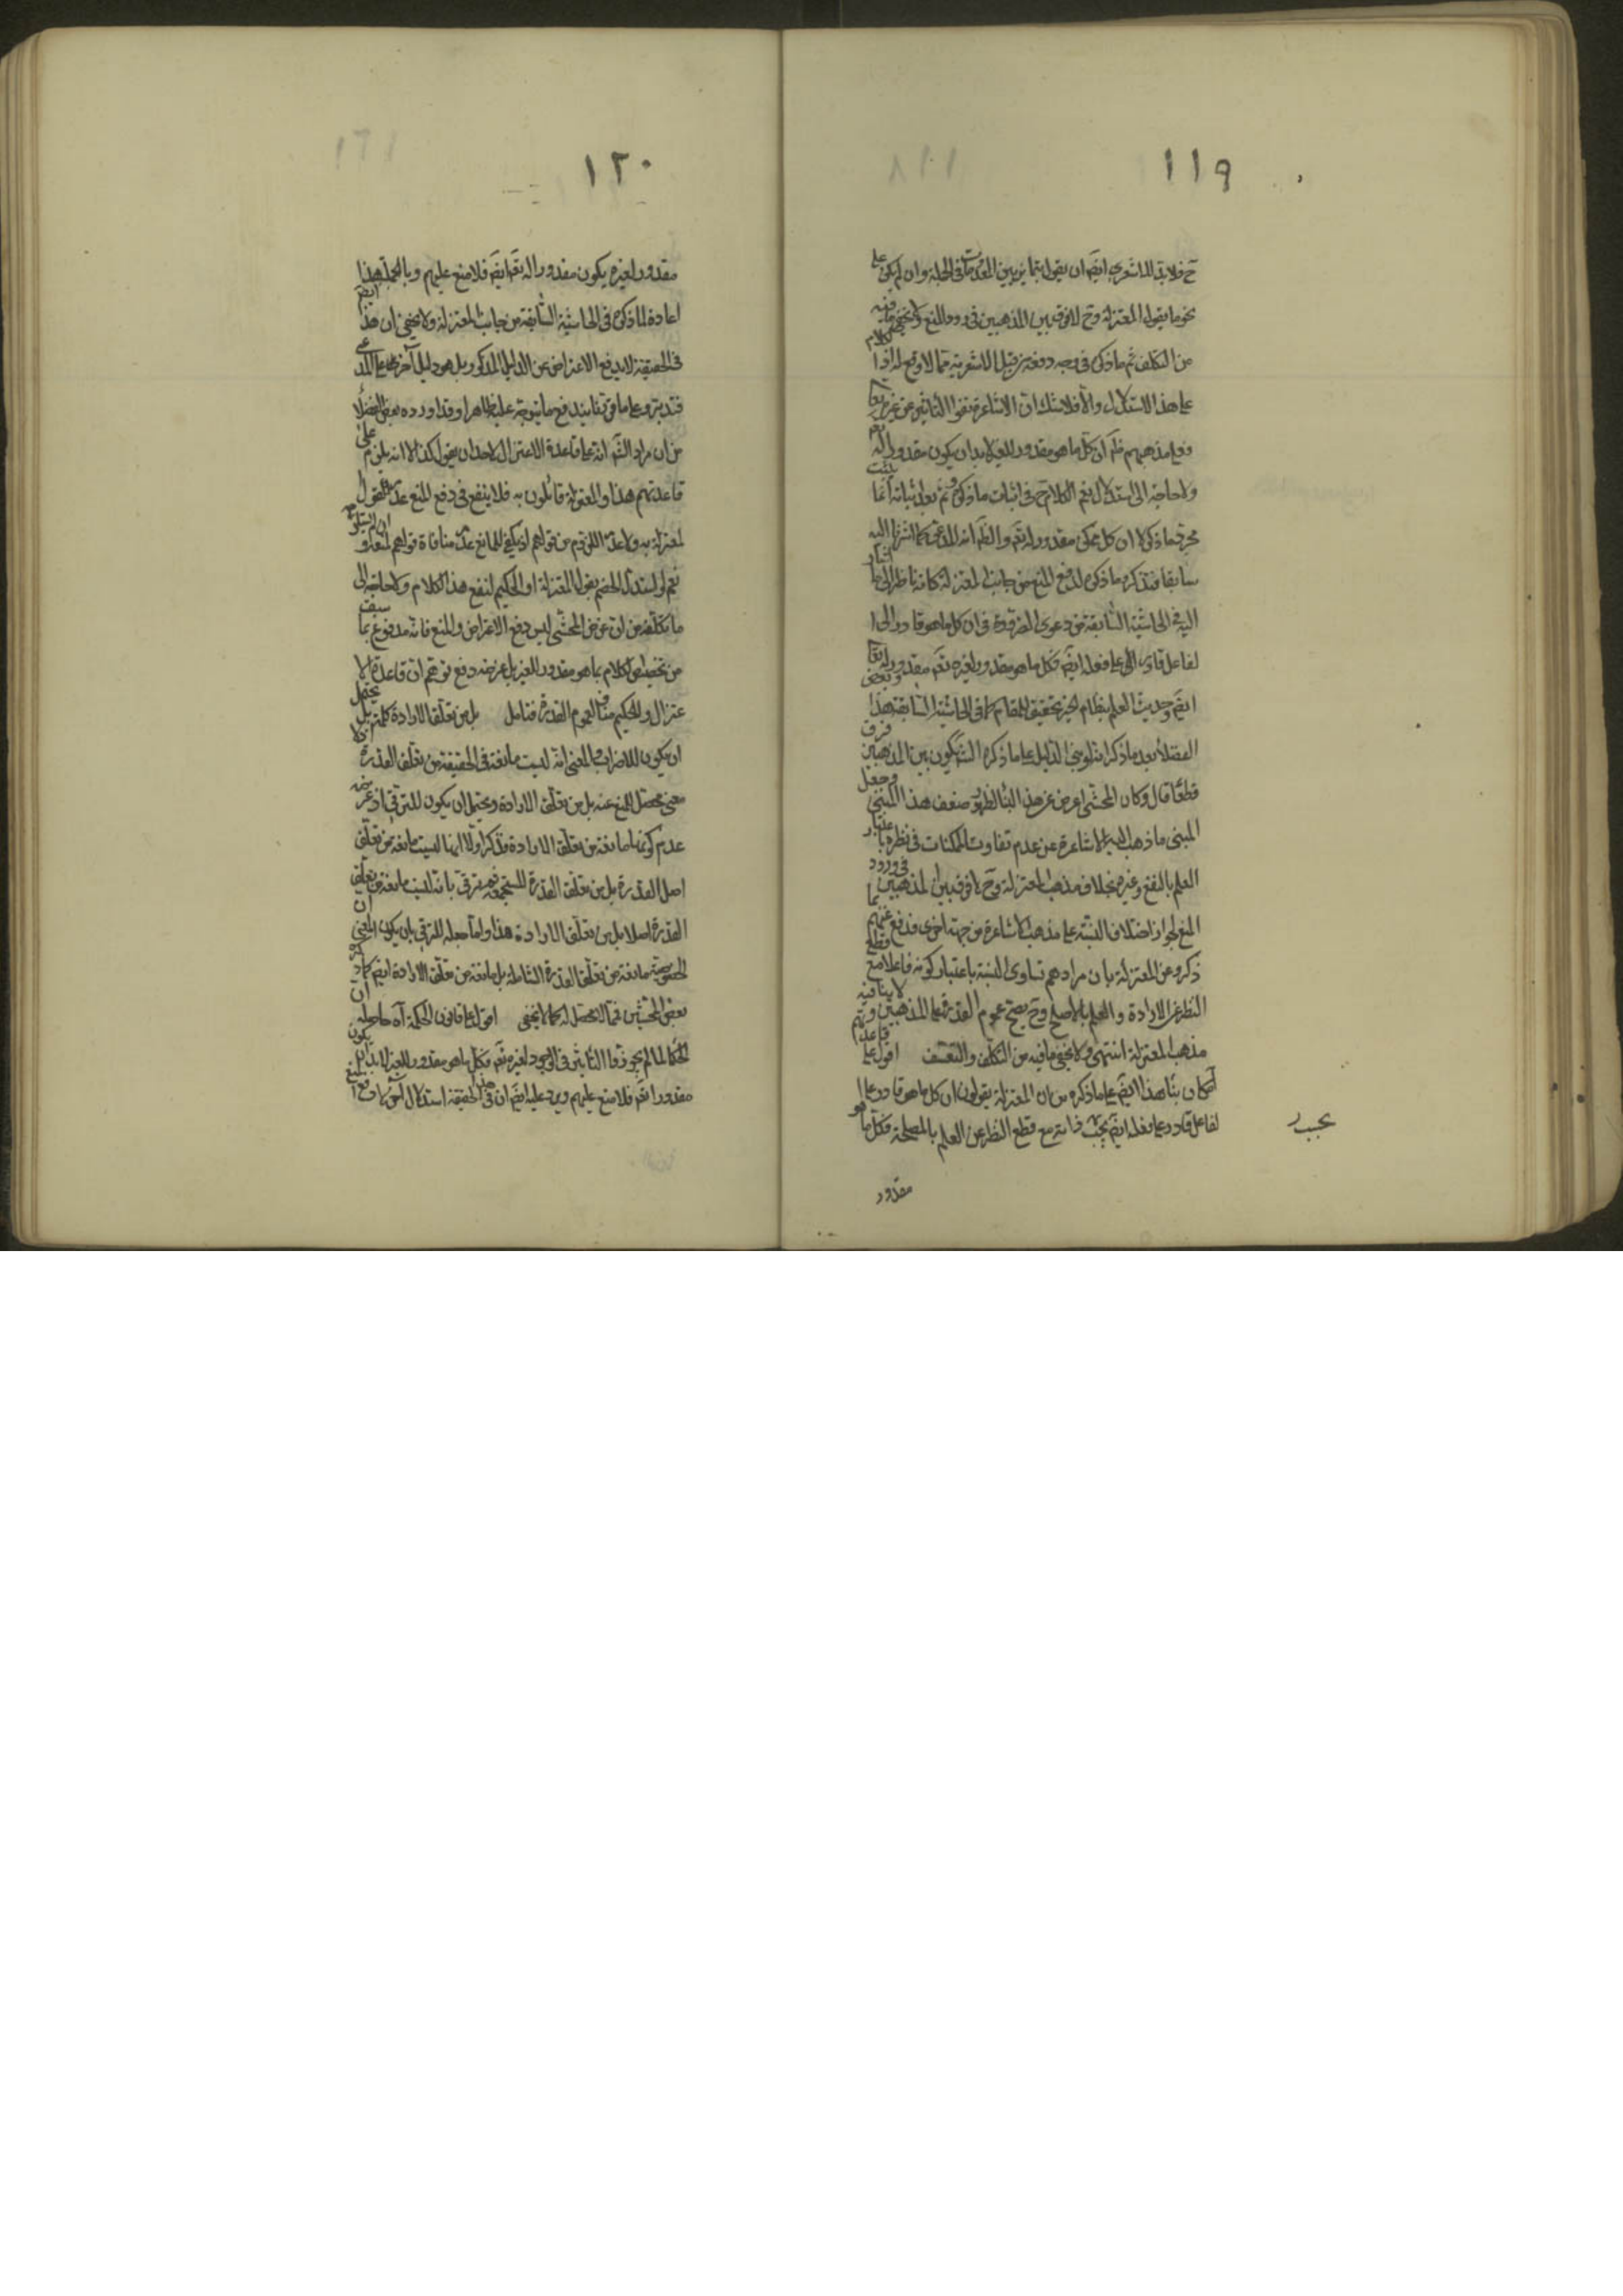 ١١٩
ح فلا بد للاشعري ايضا ان يقول بتمايز بين المعدومات في الجملة وان لم يكن على
نحو ما يقول المعتزلة وح لا فرق بين المذهبين في ورود المنع ولا يخفى ما فيه
من التكلف ثم ما ذكره في وجه دفعه من قبل الاشعرية مما لا وقع له اذ الكلام
على هذا الاستدلال والا فلا شك ان الاشاعرة نفوا التأثير عن غيره تعا
فعلى مذهبهم كل ما هو مقدور للغير لا بد ان يكون مقدورا له تعم
ولا حاجة الى استدلال نعم الكلام ح في اثبات ما ذكروه ثم بعد اثباته انما يثبت
مجرد ما ذكر لا ان كل ممكن مقدور له تعم والظ انه المدعى كما اشرنا اليه
سابقا فتذكره ما ذكره لدفع المنع من جانب المعتزلة كانه ناظر الى ما اشار
اليه في الحاشية السابقة من دعوى الضرورة في ان كل ما هو قادر الى ا
لفاعل قادر الى على فعله ايضم فكل ما هو مقدور لغيره تعم مقدور له تعا
ايضم وحديث العلم بنظام الخير تحقيق للمقام كما في الحاشية السابقة هذا وبعض
الفضلاء بعد ما ذكر ابتناء الدليل على ما ذكره المشككون بين المذهبين فرق
قطعا قال وكان المحشى اعرض عن هذا البناء لظهور ضعف هذا المبنى وجعل
المبنى ما ذهب اليه الاشاعرة من عدم تفاوت الممكنات في نظره باعتبار
العلم بالنفع وغيره بخلاف مذهب المعتزلة وح لا فرق بين المذهبين في ورود
المنع لجواز اختلاف النسبة على مذهب الاشاعرة من جهة اخرى فدفع عنهم بما
ذكر وعن المعتزلة بان مرادهم تساوى النسبة باعتبار كونه فاعلا مع قطع
النظر عن الارادة والعلم بالاصلح وح يصح عموم القدرة على المذهبين ويتم لا ينافيه
مذهب المعتزلة انتهى ولا يخفى ما فيه من التكلف والتعسف اقول على قاعدة
كان بناء هذا ايضم على ما ذكره من ان المعتزلة يقولون ان كل ما هو قادر على ا
لفاعل قادر على فعله ايضم بحسب ذاته مع قطع النظر عن العلم بالمصلحة فكل ما هو
بحسب
مقدور
١٢٠
مقدور لغيره يكون مقدورا له تعم ايضم فلا منع عليهم وبالجملة هذا
اعادة لما ذكره في الحاشية السابقة من جانب المعتزلة ولا يخفى ان هذا ايضم
في الحقيقة لا يدفع الاعتراض عن الدليل المذكور بل هو دليل آخر على المدعى
فتدبر وعلى ما قررنا يندفع ما يتوجه عليه ظاهرا وقد اورده بعض الفضلاء
من ان مراد الش انه على قاعدة الاعتزال لاحد ان يقول كذا لا انه يلزم على
قاعدتهم هذا والمعتزلة قائلون به فلا ينفع في دفع المنع عدم القول
لمعتزلة به ولا عدم اللزوم من قولهم اذ يكفى للمانع عدم منافاة قولهم لمعارفه
نعم لو استدل الخصم بقول المعتزلة او الحكيم لنفع هذا الكلام ولا حاجة الى
ما تكلفه من ان غرض المحشى ليس دفع الاعتراض والمنع فانه مدفوع بما سبق
من تخصيص الكلام بما هو مقدور للغير بل غرضه دفع توهم ان قاعدة الا
عتزال والحكيم مناف لعموم القدرة فتامل بل من تعلق الارادة كلمة بل يحتمل
ان يكون للاضراب والمعنى انه ليست مانعة في الحقيقة من تعلق القدرة
معنى محصل للمنع عنه بل من تعلق الارادة ويحتمل ان يكون للترقى اذ غرضه
عدم كونها مانعة من تعلق الارادة فذكر اولا انها ليست مانعة من تعلق
اصل القدرة بل من تعلق القدرة المستجمعة ثم ترقى بانه ليست مانعة من تعلق
القدرة اصلا بل من تعلق الارادة هذا واما جعله للترقى بان يكون المعنى ان
الخصوصية مانعة من تعلق القدرة الشاملة بل مانعة من تعلق الارادة ايضم كما ذكره
بعض المحشين فمما لا محصل له كما لا يخفى اقول على قانون الحكمة آه حاصله ان
الحكماء لما لم يجوزوا التأثير في الوجود لغيره تعم فكل ما هو مقدور للغير لا بد ان يكون
مقدورا تعم فلا منع عليهم ويرد عليه ايضم ان في الحقيقة استدلال آخر لا دفع المنع